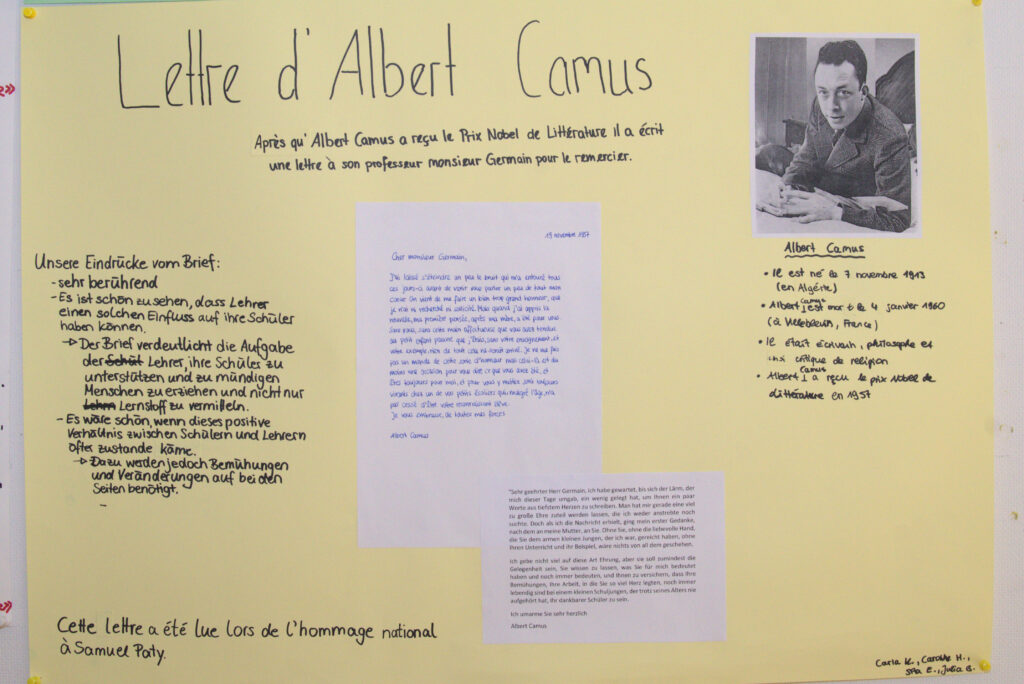 Lettre d'Albert Camus
Après qu'Albert Camus a reçu le Prix Nobel de Littérature il a écrit
une lettre à son professeur monsieur Germain pour le remercier.
Unsere Eindrücke vom Brief:
- sehr berührend
- Es ist schön zu sehen, dass Lehrer
einen solchen Einfluss auf ihre Schüler
haben können.
→ Der Brief verdeutlicht die Aufgabe
der Schül Lehrer, ihre Schüler zu
unterstützen und zu mündigen
Menschen zu erziehen und nicht nur
Lehrn Lernstoff zu vermitteln.
- Es wäre schön, wenn dieses positive
Verhältnis zwischen Schülern und Lehrern
öfter zustande käme.
→ Dazu werden jedoch Bemühungen
und Veränderungen auf beiden
Seiten benötigt.
19 novembre 1957
Cher monsieur Germain,
J'ai laissé s'éteindre un peu le bruit qui m'a entouré tous
ces jours-ci avant de venir vous parler un peu de tout mon
cœur. On vient de me faire un bien trop grand honneur, que
je n'ai ni recherché ni sollicité. Mais quand j'ai appris la
nouvelle, ma première pensée, après ma mère, a été pour vous.
Sans vous, sans cette main affectueuse que vous avez tendue
au petit enfant pauvre que j'étais, sans votre enseignement, et
votre exemple, rien de tout cela ne serait arrivé. Je ne me fais
pas un monde de cette sorte d'honneur mais celui-là est du
moins une occasion pour vous dire ce que vous avez été, et
êtes toujours pour moi, et pour vous
vivants chez un de vos petits écoliers qui, malgré l'âge, n'a
pas cessé d'être votre reconnaissant élève.
Je vous embrasse, de toutes mes forces
Albert Camus
"Sehr geehrter Herr Germain, ich habe gewartet, bis sich der Lärm, der
mich dieser Tage umgab, ein wenig gelegt hat, um Ihnen ein paar
Worte aus tiefstem Herzen zu schreiben. Man hat mir gerade eine viel
zu große Ehre zuteil werden lassen, die ich weder anstrebte noch
suchte. Doch als ich die Nachricht erhielt, ging mein erster Gedanke,
nach dem an meine Mutter, an Sie. Ohne Sie, ohne die liebevolle Hand,
die Sie dem armen kleinen Jungen, der ich war, gereicht haben, ohne
Ihren Unterricht und Ihr Beispiel, wäre nichts von all dem geschehen.
Ich gebe nicht viel auf diese Art Ehrung, aber sie soll zumindest die
Gelegenheit sein, Sie wissen zu lassen, was Sie für mich bedeutet
haben und noch immer bedeuten, und Ihnen zu versichern, dass Ihre
Bemühungen, Ihre Arbeit, in die Sie so viel Herz legten, noch immer
lebendig sind bei einem kleinen Schuljungen, der trotz seines Alters nie
aufgehört hat, Ihr dankbarer Schüler zu sein.
Ich umarme Sie sehr herzlich
Albert Camus
Albert Camus
• Il est né le 7 novembre 1913
(en Algérie)
• Albert Camus est mort le 4 janvier 1960
(à Villeblevin, France)
• Il était écrivain, philosophe et
critique de religion
• Albert Camus a reçu le prix Nobel de
Littérature en 1957
Cette lettre a été lue lors de l'hommage national
à Samuel Paty.
Carla K., Caroline H.,
E., Julia B.